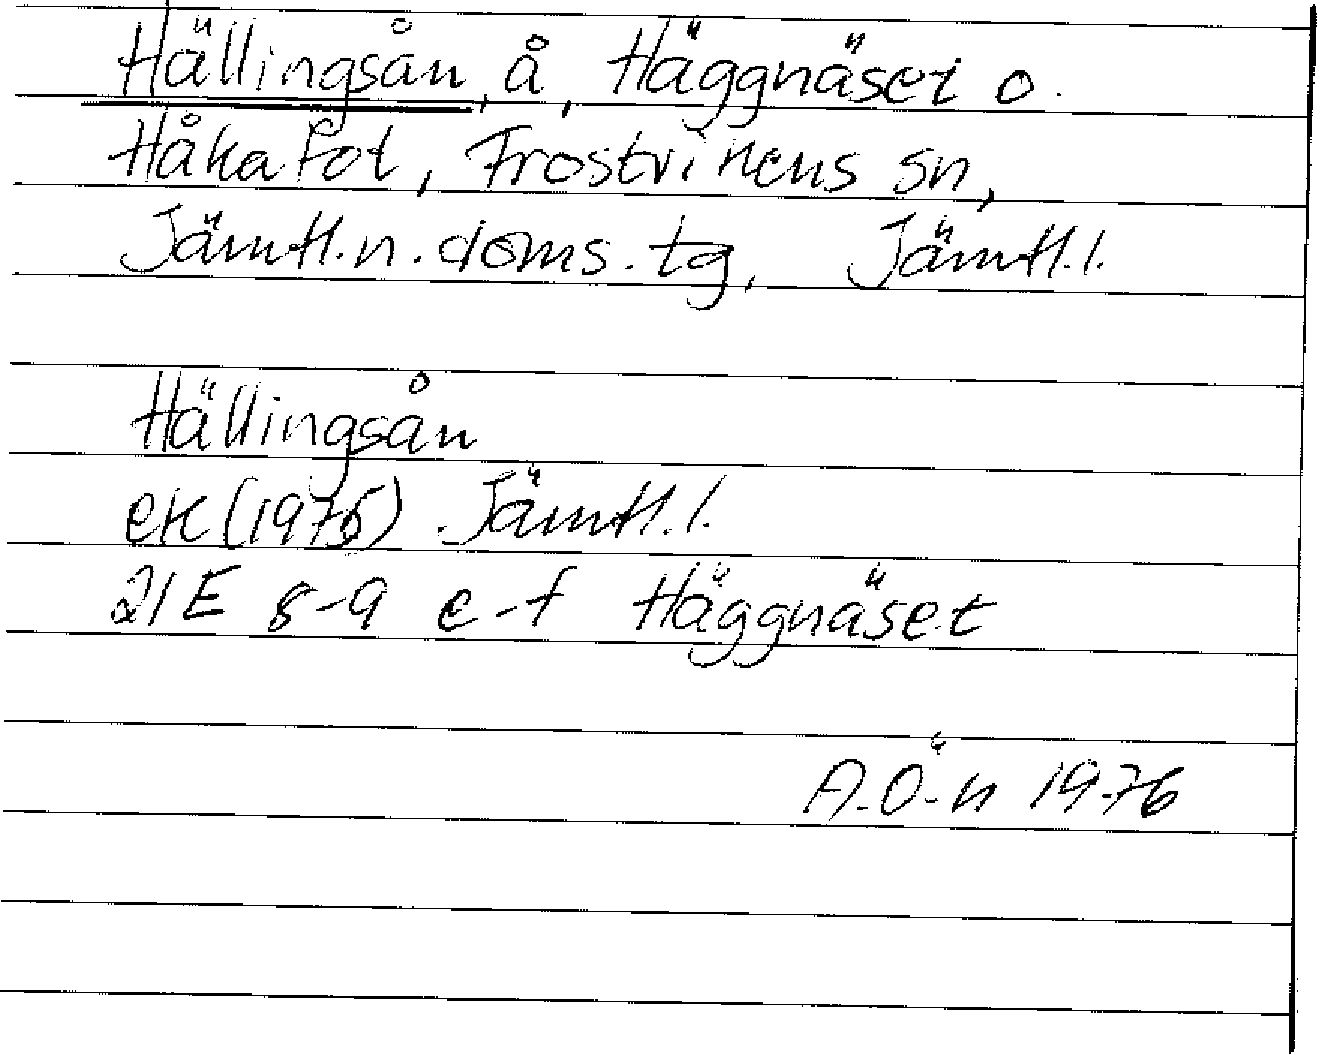 Hällingsån, å, Häggnäset o.
Håkafot, Frostvikens sn,
Jämtl. n. doms. tg, Jämtl. l.
Hällingsån
ek (1976) Jämtl. l.
21E 8-9 e-f Häggnäset
A. Ö-n 1976